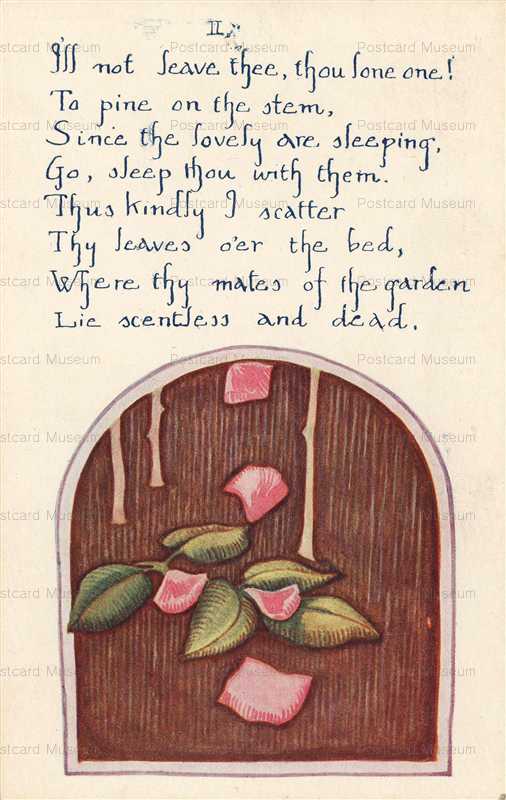 II.
I'll not leave thee, thou lone one!
To pine on the stem,
Since the lovely are sleeping,
Go, sleep thou with them.
Thus kindly I scatter
Thy leaves o'er the bed,
Where thy mates of the garden
Lie scentless and dead.
Postcard Museum